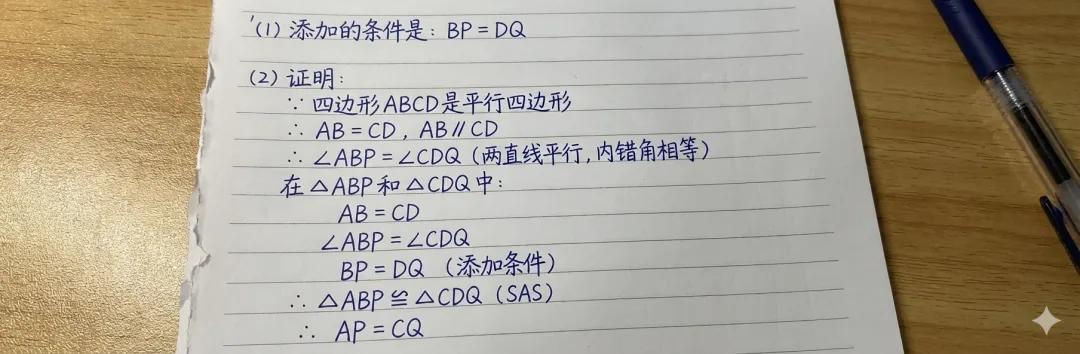 (1) 添加的条件是: BP = DQ
(2) 证明:
∵ 四边形ABCD是平行四边形
∴ AB = CD, AB∥CD
∴ ∠ABP = ∠CDQ (两直线平行,内错角相等)
在△ABP和△CDQ中:
AB = CD
∠ABP = ∠CDQ
BP = DQ (添加条件)
∴ △ABP≌△CDQ (SAS)
∴ AP = CQ